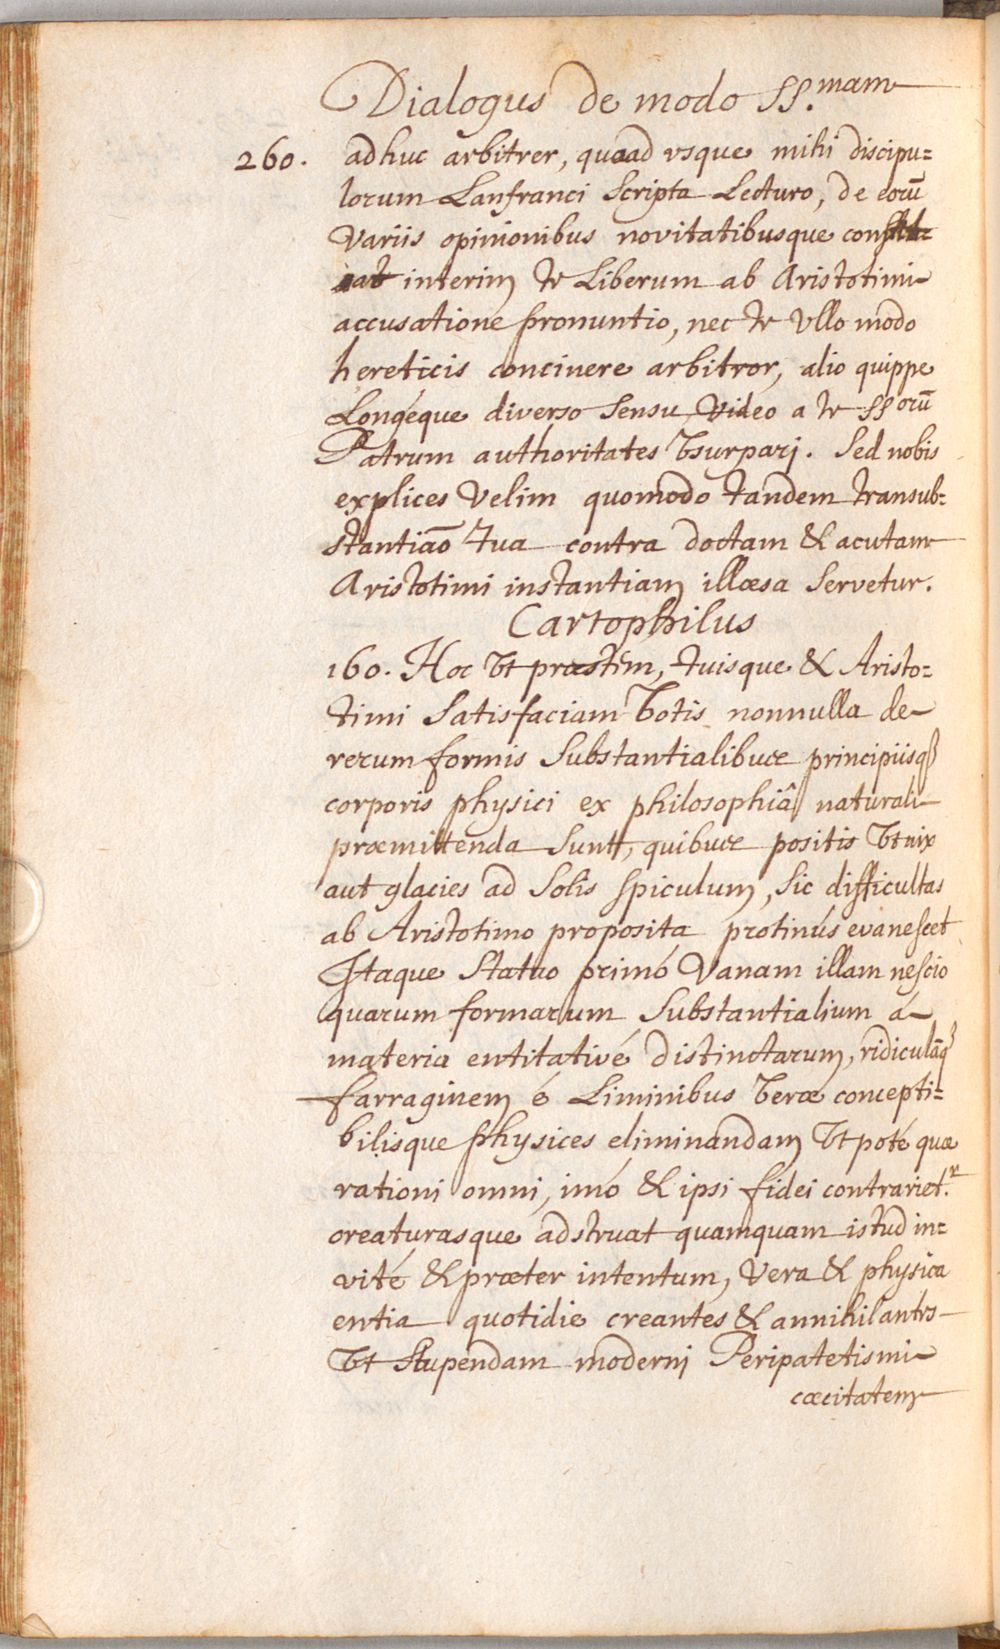 Dialogus de modo SS.mam
260. adhuc arbitrer, quoad vsque mihi discipu=
lorum Lanfranci Scripta Lecturo, de eorū
Variis opinionibus novitatibusque
interim te Liberum ab Aristotimi
accusatione pronuntio, nec te Vllo modo
hereticis concinere arbitror, alio quippe
Longéque diverso Sensu Video a te SSorū
Patrum authoritates Vsurpari. Sed nobis
explices Velim quomodo tandem transub=
stantiāo Tua contra doctam & acutam
Aristotimi instantiam illæsa Servetur.
Cartophilus
160. Hoc Vt præstem, tuisque & Aristo=
timi Satisfaciam Votis nonnulla de
rerum formis Substantialibus principiisq3
corporis physici ex philosophiâ naturali
præmittenda Sunt, quibus positis Vt nix
aut glacies ad Solis Spiculum, Sic difficultas
ab Aristotimo proposita protinús evanescet
Itaque Statuo primó Vanam illam nescio
quarum formarum Substantialium á
materia entitativé distinctarum, ridiculāq3
farraginem é Liminibus Veræ concepti=
bilisque physices eliminandam Vt poté quæ
rationi omni, imó & ipsi fidei contrariet.r
creaturasque adstruat quamquam istud in=
vité & præter intentum, Vera & physica
entia quotidie creantes & annihilantes
Vt Stupendam moderni Peripatetismi
cæcitatem